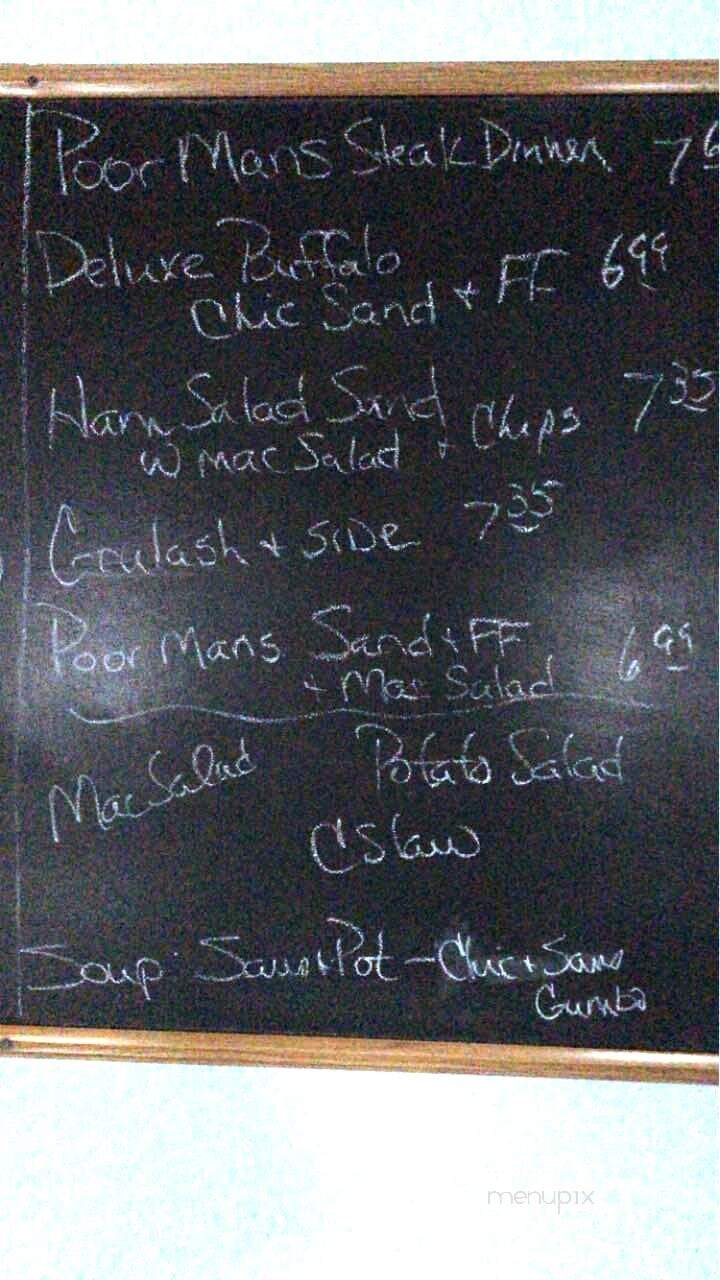 Poor Mans Steak Dinner 7
Deluxe Buffalo 6 99
Chic Sand + FF
Ham Salad Sand 7 35
W Mac Salad + Chips
Goulash + SIDE 7 35
Poor Mans Sand + FF 6 99
+ Mac Salad
Mac Salad Potato Salad
C Slaw
Soup: Saus + Pot - Chic + Saus
Gumbo
menupix